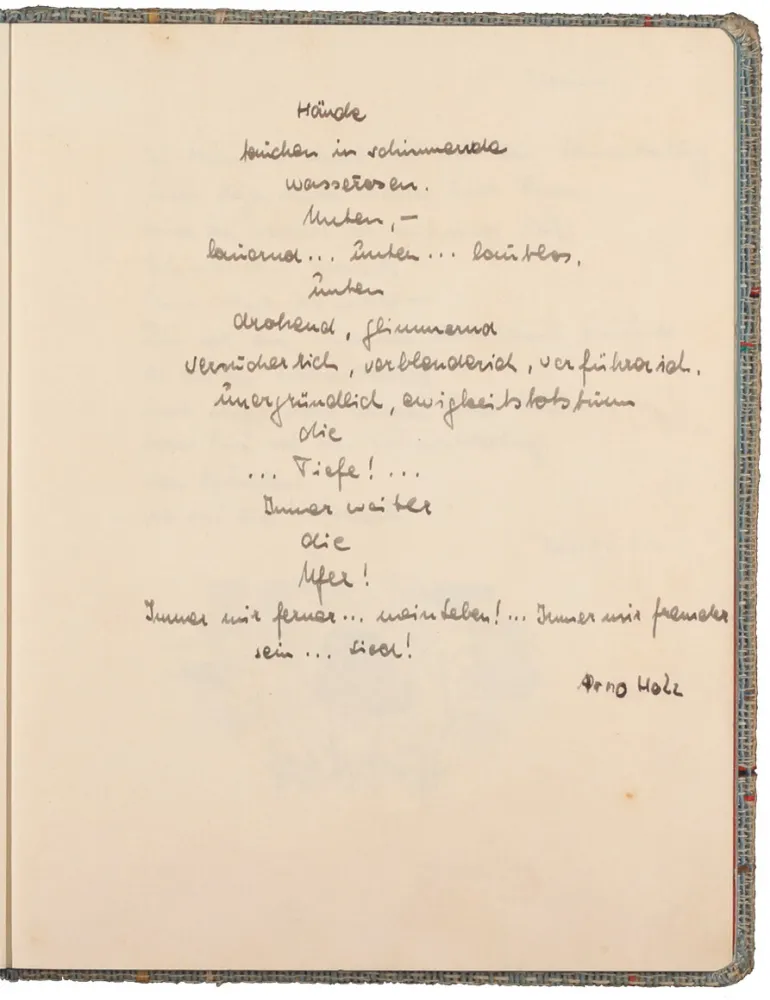 Hände
tauchen in schimmernde
wasserosen.
Unten, –
lauernd... unten... lautlos,
unten
drohend, glimmernd
versucherlich, verblenderich, verführerich,
unergründlich, ewigkeitstotstumm
die
... Tiefe! ...
Immer weiter
die
Ufer!
Immer mir ferner... mein Leben! ... Immer mir fremder
sein ... Lied!
Arno Holz